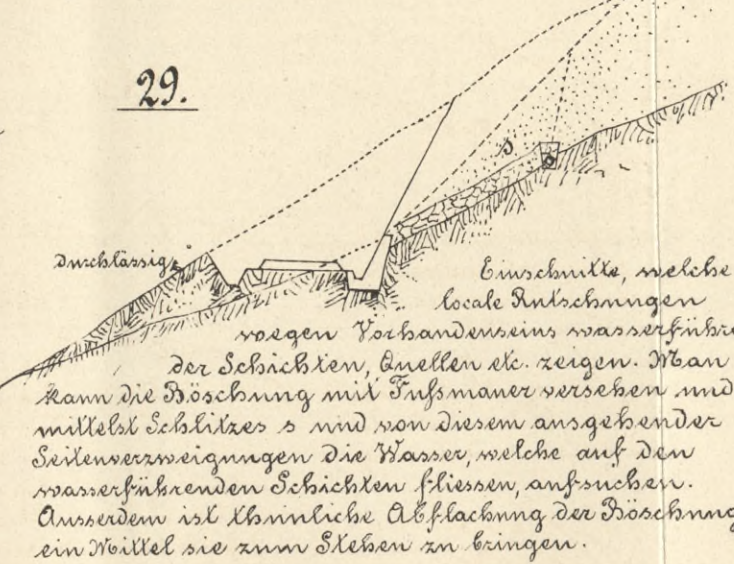 29.
s
durchlässig
Einschnitte, welche
locale Rutschungen
wegen Vorhandenseins wasserführen
der Schichten, Quellen etc. zeigen. Man
kann die Böschung mit Fußmauer versehen und
mittelst Schlitzes s und von diesem ausgehender
Seitenverzweigungen die Wasser, welche auf den
wasserführenden Schichten fliessen, aufsuchen.
Ausserdem ist thunliche Abflachung der Böschung
ein Mittel sie zum Stehen zu bringen.